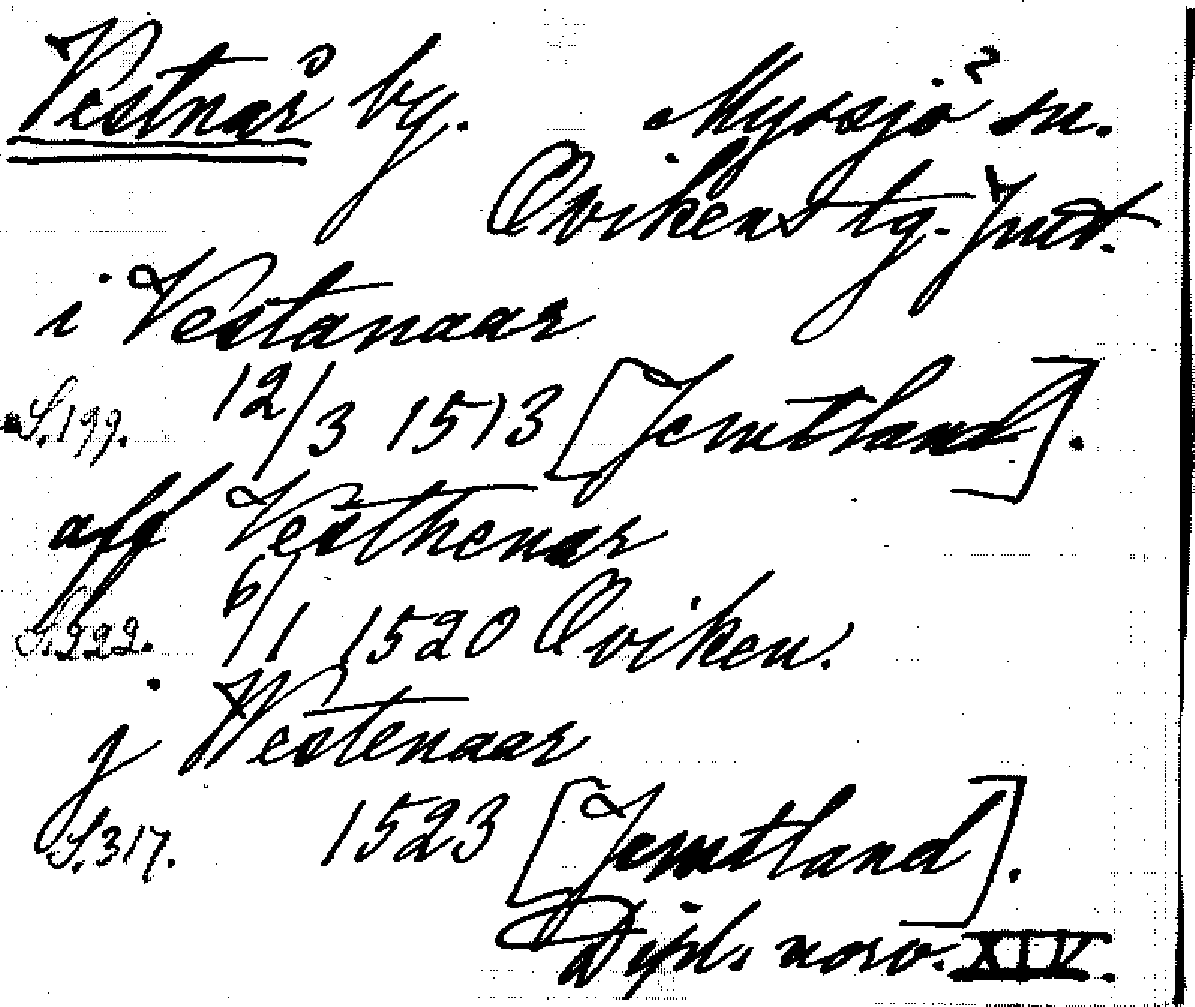 Vestnår by. Myssjö sn.
Ovikens tg. Jmt.
i Vestanaar
S. 199. 12/3 1513 [Jemtland].
aff Vesthenar
S. 222. 6/1 1520 Oviken.
j Westenaar
S. 317. 1523 [Jemtland].
Dipl. norv. XIV.